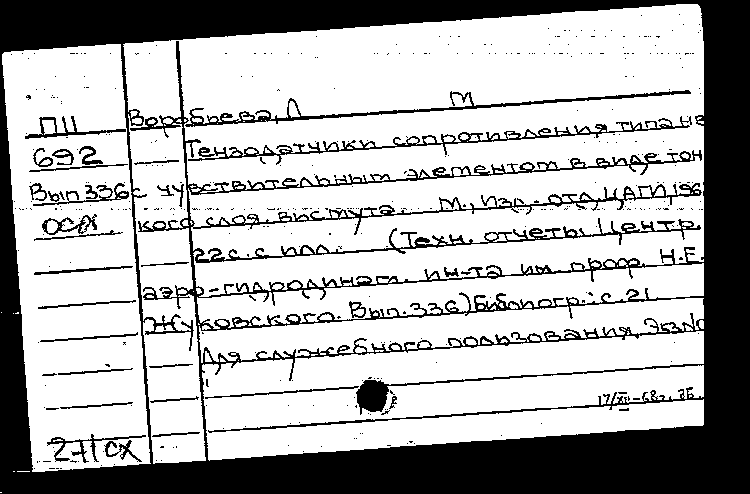 П11 Воробьева, Л М
692 Тензодатчики сопротивления типа НВ
Вып 336 с чувствительным элементом в виде тон
осх. кого слоя висмута. М., Изд.-отд. ЦАГИ, 196
22с. с илл. (Техн. отчеты Центр.
аэро-гидродинам. ин-та им. проф. Н.Е.
Жуковского. Вып. 336) Библиогр.: с. 21
Для служебного пользования. Экз№
17/XII-68г.
2+1 сх